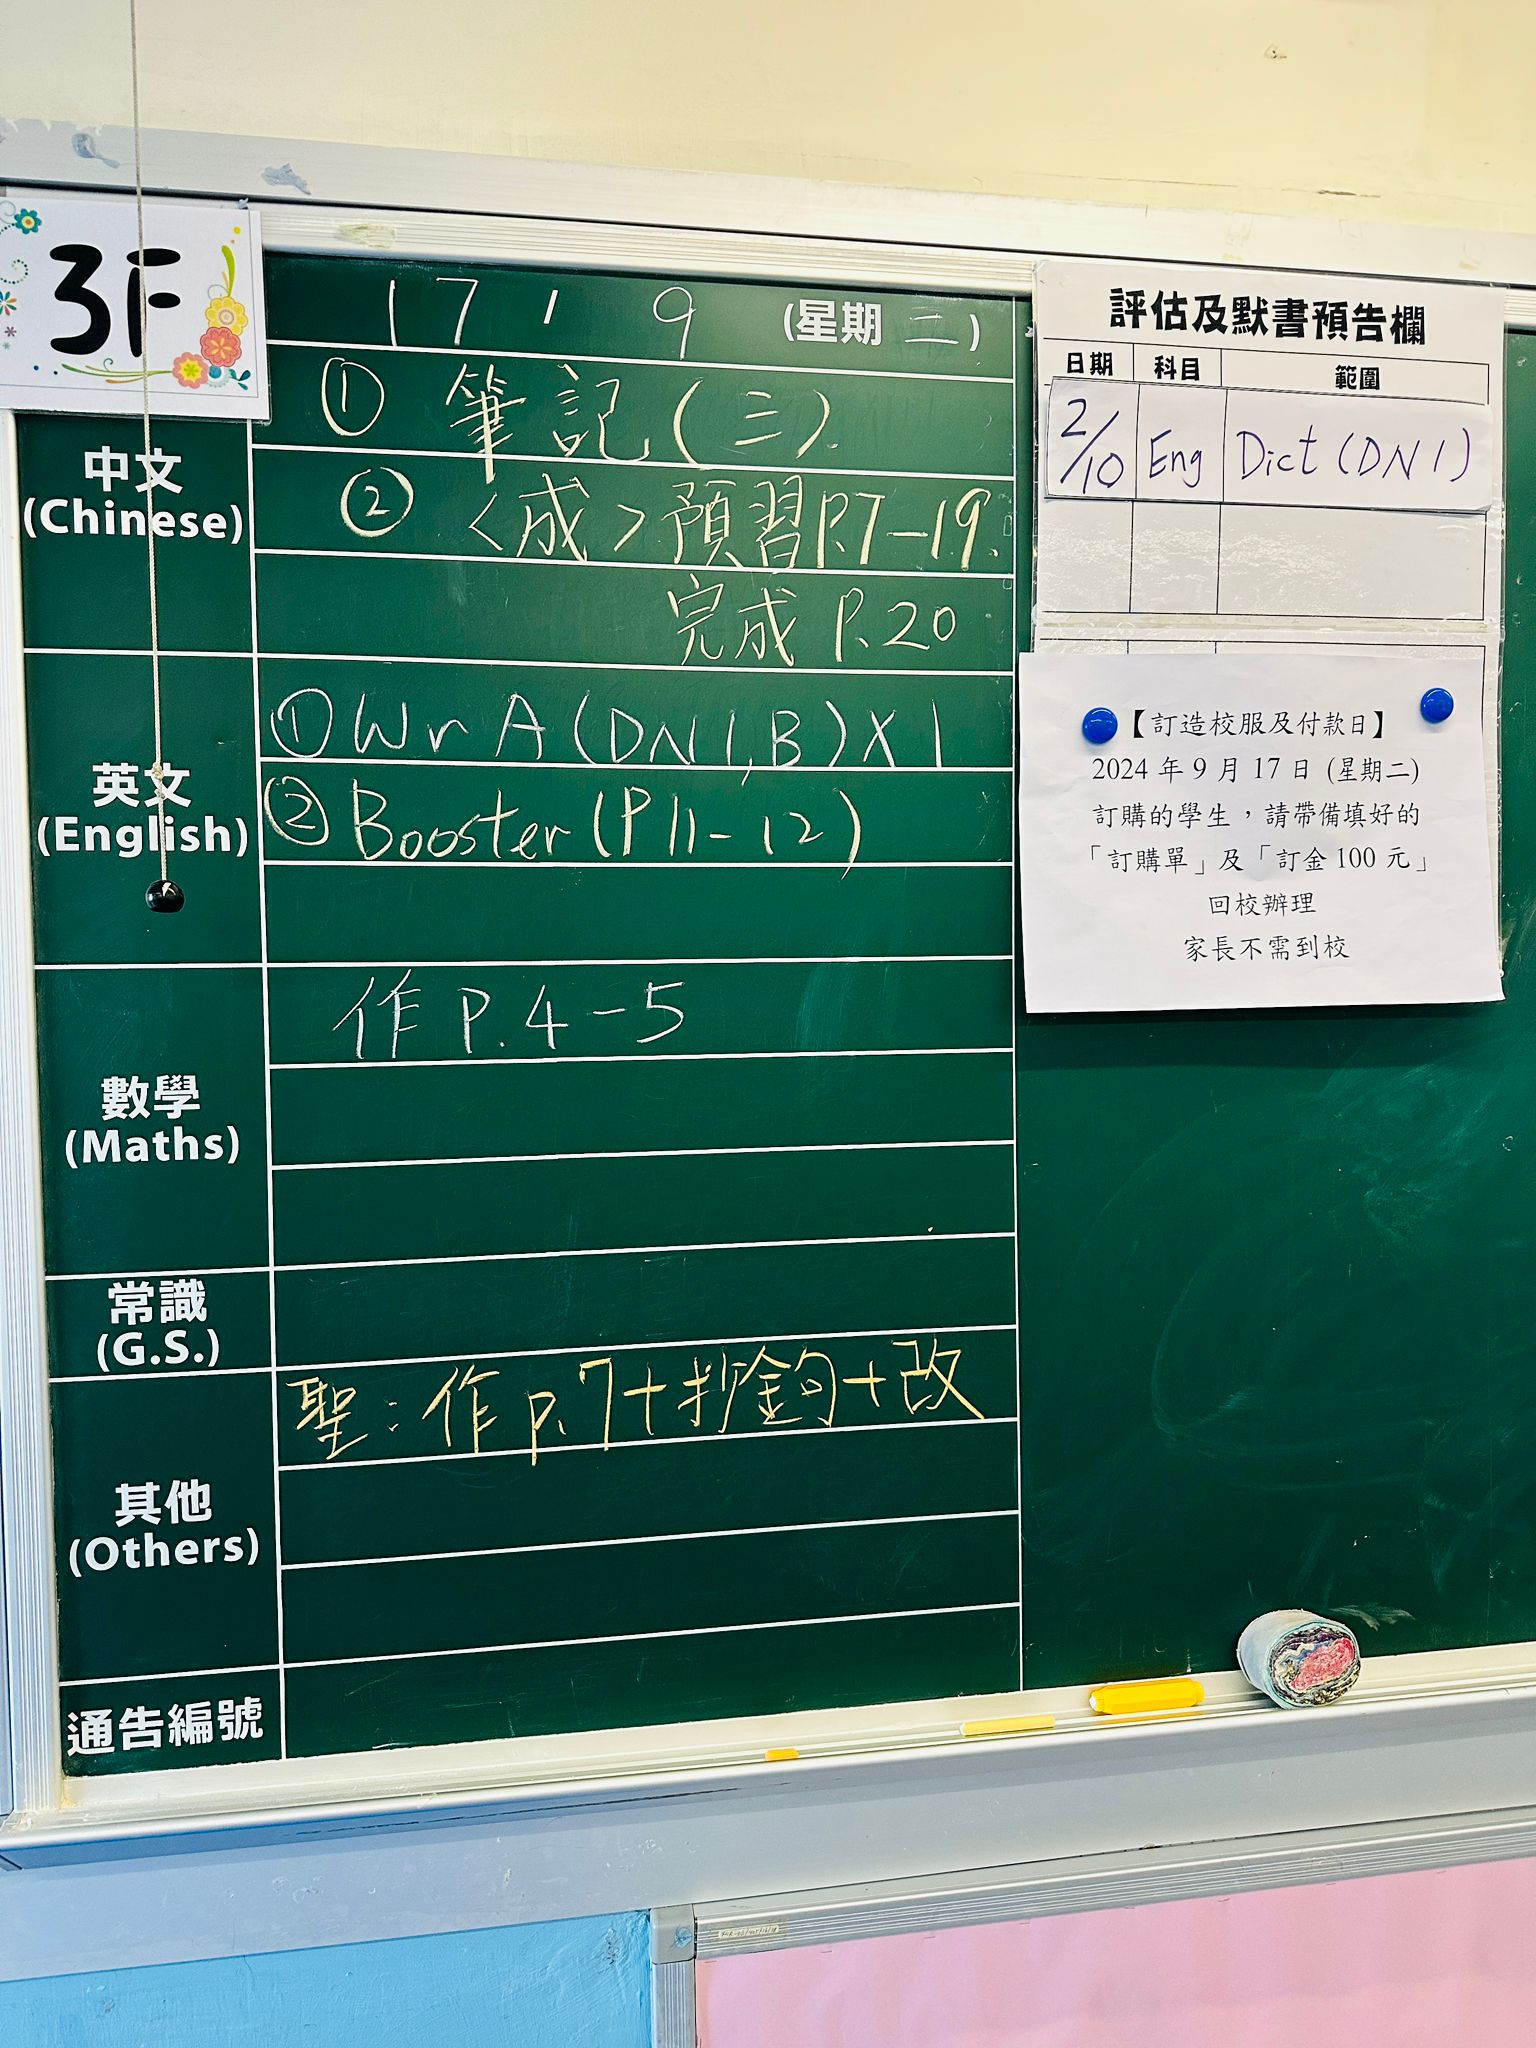 3F
17 / 9 (星期 二)
中文
(Chinese)
① 筆記(三).
② <成>預習P.7-19.
完成 P.20
英文
(English)
① Wr A (DN 1, B) X 1
② Booster (P 11-12)
數學
(Maths)
作 P. 4-5
常識
(G.S.)
其他
(Others)
聖:作 p.7+抄金句+改
通告編號
評估及默書預告欄
日期 科目 範圍
2/10 Eng Dict (DN 1)
【訂造校服及付款日】
2024 年 9 月 17 日 (星期二)
訂購的學生,請帶備填好的
「訂購單」及「訂金 100 元」
回校辦理
家長不需到校